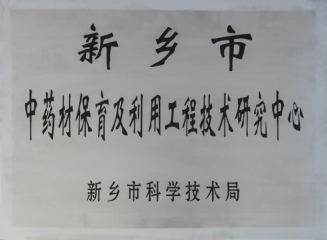 新乡市
中药材保育及利用工程技术研究中心
新乡市科学技术局